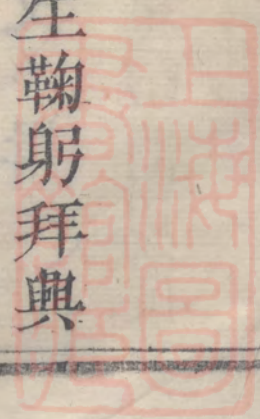 生鞠躬拜興
上海圖
書館藏